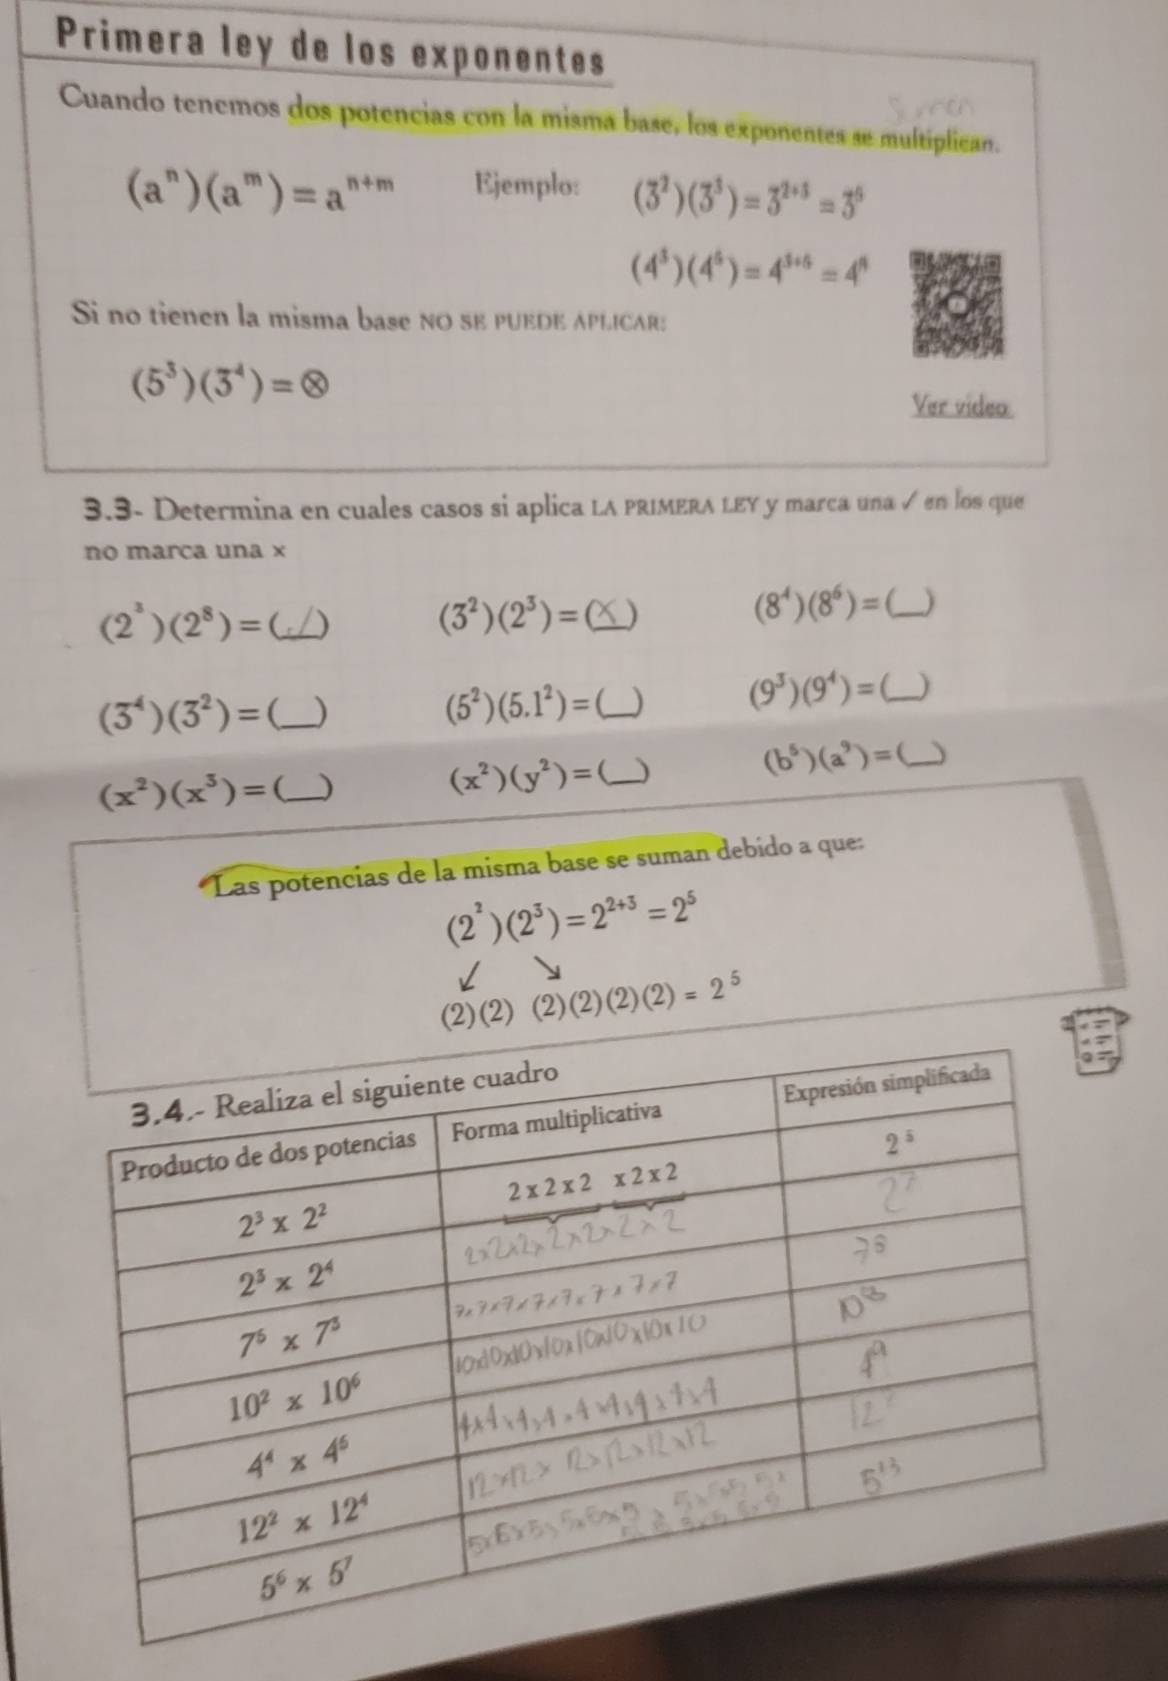 Primera ley de los exponentes
Cuando tenemos dos potencias con la misma base, los exponentes se multiplican.
(aⁿ)(aᵐ) = aⁿ⁺ᵐ Ejemplo: (3²)(3³) = 3²⁺³ = 3⁵
(4³)(4⁵) = 4³⁺⁵ = 4⁸
Si no tienen la misma base NO SE PUEDE APLICAR:
(5³)(3⁴) = ⊗
Ver video
3.3- Determina en cuales casos si aplica LA PRIMERA LEY y marca una ✓ en los que
no marca una ×
(2³)(2⁸) = (✓) (3²)(2³) = (X) (8⁴)(8⁶) = (__)
(3⁴)(3²) = (__) (5²)(5.1²) = (__) (9³)(9⁴) = (__)
(x²)(x³) = (__) (x²)(y²) = (__) (b⁵)(a⁹) = (__)
Las potencias de la misma base se suman debido a que:
(2²)(2³) = 2²⁺³ = 2⁵
(2)(2) (2)(2)(2)(2) = 2⁵
3.4.- Realiza el siguiente cuadro
Producto de dos potencias Forma multiplicativa Expresión simplificada
2³ x 2² 2 x 2 x 2 x 2 x 2 2⁵
2³ x 2⁴ 2x2x2x2x2x2x2 2⁷
7⁵ x 7³ 7x7x7x7x7x7x7x7 7⁸
10² x 10⁶ 10x10x10x10x10x10x10x10 10⁸
4⁴ x 4⁵ 4x4x4x4x4x4x4x4x4 4⁹
12² x 12⁴ 12x12x12x12x12x12 12
5⁶ x 5⁷ 5x5x5x5x5x5 5¹³